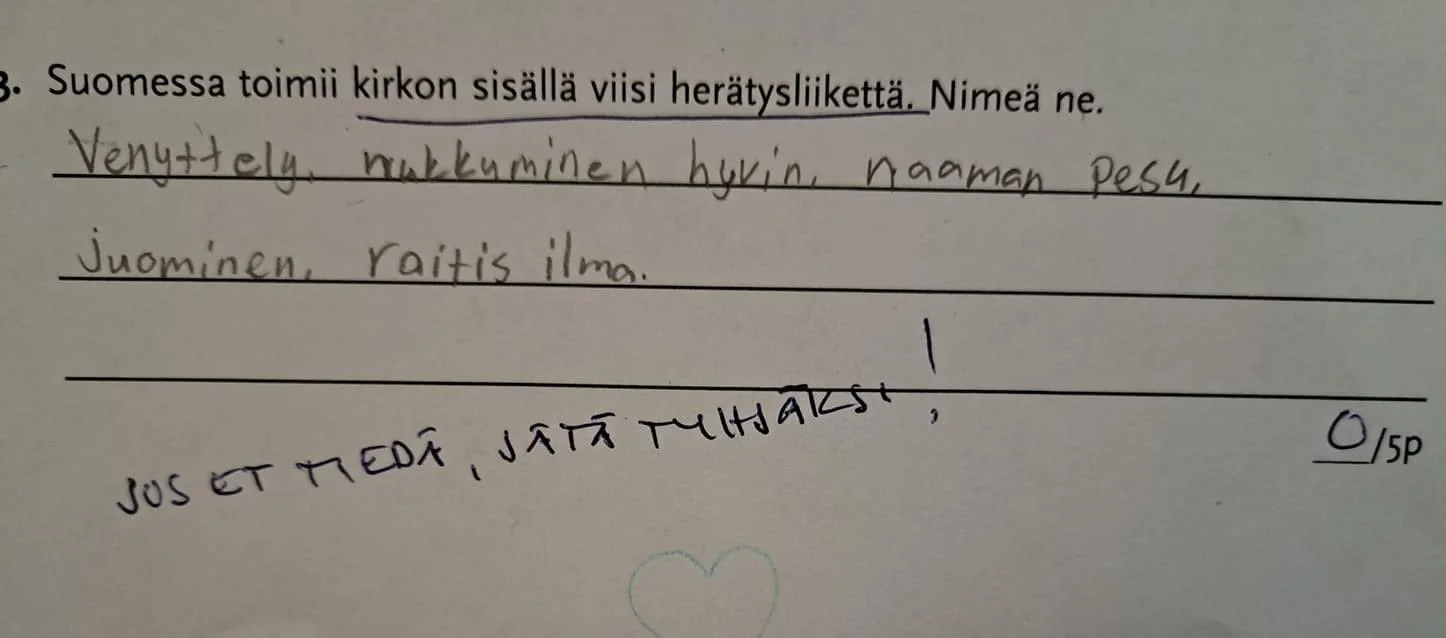 3. Suomessa toimii kirkon sisällä viisi herätysliikettä. Nimeä ne.
Venyttely, nukkuminen hyvin, naaman pesu,
juominen, raitis ilma.
JOS ET TIEDÄ, JÄTÄ TYHJÄKSI!
0/5P